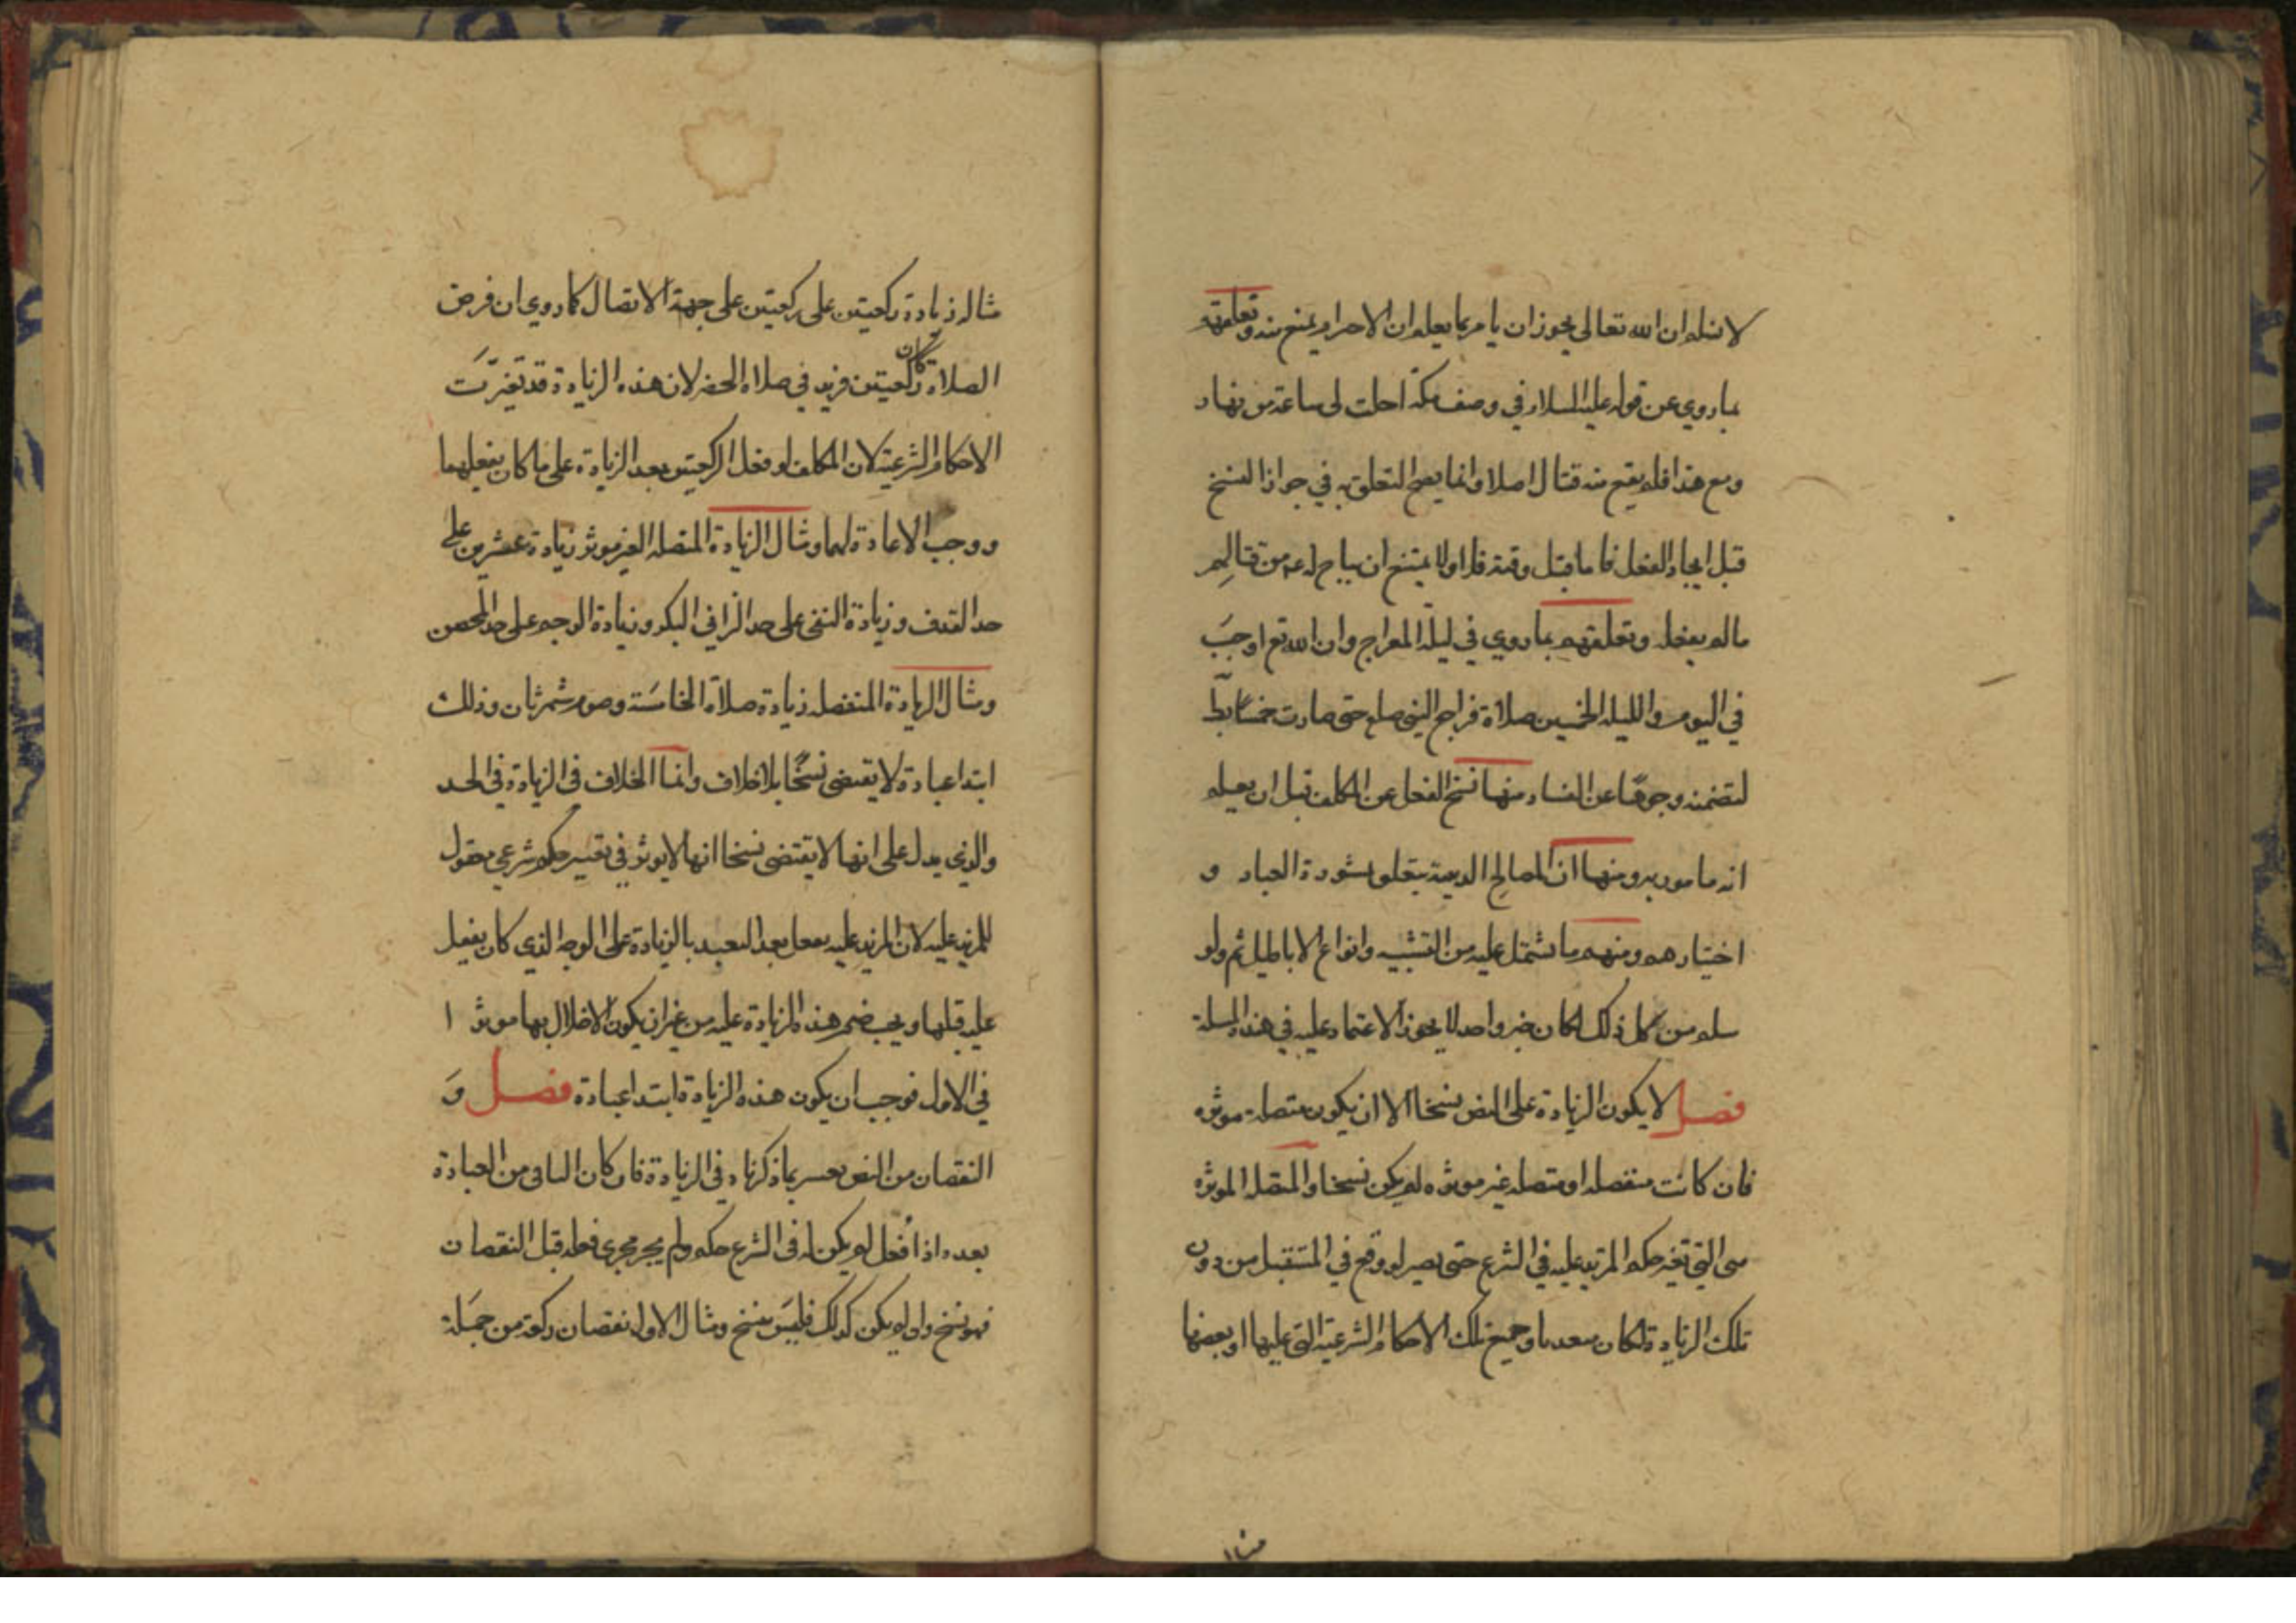 لا نسلم ان الله تعالى يجوز ان يامر بما يعلم ان الاحرام يمنع منه وتعلقهم
بما روي عن قوله عليه السلام في وصف مكة احلت لى ساعة من نهار
ومع هذا فلم يقع منه قتال اصلا وانما يصح التعلق به في جواز النسخ
قبل ايجاد الفعل فاما قبل وقته فلا ولا يمتنع ان يباح له من قتالهم
ما لم يفعله وتعلقهم بما روي في ليلة المعراج وان الله تع اوجب
في اليوم والليله الخمسين صلاة فراجع النبي صلع حتى صارت خمسا
لتضمنه وجوها عن الفساد منها نسخ الفعل عن المكلف قبل ان يعلم
انه مامور به ومنها ان المصالح الدينية يتعلق بشورة العباد و
اختيارهم ومنهم ما تشتمل عليه من التشبيه وانواع الاباطيل ثم ولو
سلم من كل ذلك لكان خبر واحد لا يجوز الاعتماد عليه في هذه المسلة
فصل لا يكون الزيادة على النص نسخا الا ان يكون متصلة موثره
فان كانت منفصله او متصله غير موثره لم يكن نسخا والمتصله الموثره
هى التي تغير حكم المزيد عليه في الشرع حتى يصير لو وقع في المستقبل من دون
تلك الزيادة لكان جميع تلك الاحكام الشرعية التى عليها او بعضها
مثاله
مثاله زيادة ركعتين على ركعتين على جهة الاتصال كما روي ان فرض
الصلاة كان ركعتين فزيد في صلاه الحضر لان هذه الزيادة قد تغيرت
الاحكام الشرعية لان المكلف لو فعل الركعتين بعد الزيادة على ما كان يفعلهما
ووجب الاعادة لهما ومثال الزيادة المتصله الغير موثر زيادة عشرين على
حد القذف وزيادة النفى على حد الزاني البكر وزيادة الرجم على حد المحصن
ومثال الزيادة المنفصله زيادة صلاة الخامسة وصوم شهر ثان وذلك
ابتدا عبادة لا يقتضى نسخا بلا خلاف وانما الخلاف في الزيادة في الحد
والذي يدل على انها لا يقتضى نسخا انها لا يوثر في تغيير حكم شرعي معقول
للمزيد عليه لان المزيد عليه يفعل بعد التعبد بالزيادة على الوجه الذي كان يفعل
عليه قبلها ويجب ضم هذه الزيادة عليه من غير ان يكون الاخلال بها موثر ا
في الاول فوجب ان يكون هذه الزيادة ابتدا عبادة فصل وَ
النقصان من النص يعتبر بما ذكرناه في الزيادة فان كان الباقى من العبادة
بعده اذا فُعل لم يكن له في الشرع حكم ولم يجر مجرى فعله قبل النقصان
فهو نسخ وان لم يكن كذلك فليس بنسخ ومثال الاول نقصان ركعة من جملة